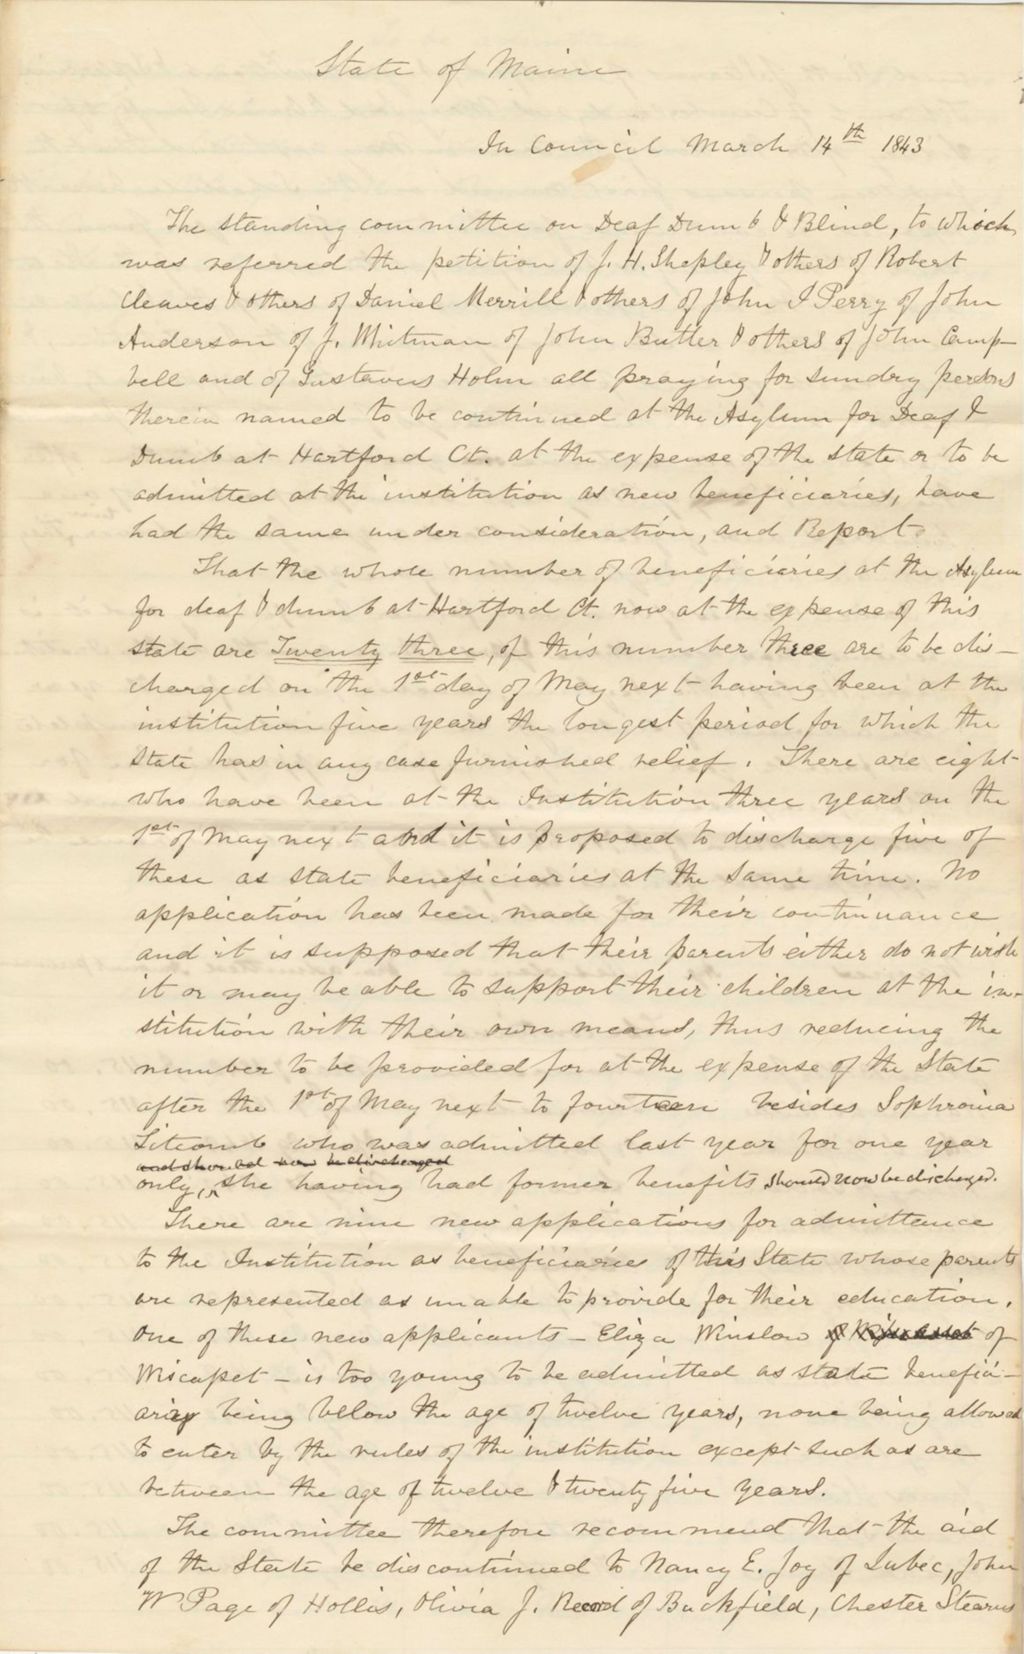 State of Maine
In Council March 14th 1843
The standing committee on Deaf Dumb & Blind, to which
was referred the petition of J. H. Shepley & others of Robert
Cleaves & others of Daniel Merrill & others of John I Perry of John
Anderson of J. Whitman of John Butler & others of John Camp-
bell and of Gustavus Holm all praying for sundry persons
therein named to be continued at the Asylum for Deaf &
Dumb at Hartford Ct. at the expense of the state or to be
admitted at the institution as new beneficiaries, have
had the same under consideration, and Report
That the whole number of beneficiaries at the Asylum
for deaf & dumb at Hartford Ct. now at the expense of this
state are Twenty three, of this number three are to be dis-
charged on the 1st day of May next having been at the
institution five years the longest period for which the
State has in any case furnished relief. There are eight
who have been at the Institution three years on the
1st of May next and it is proposed to discharge five of
these as state beneficiaries at the same time. No
application has been made for their continuance
and it is supposed that their parents either do not wish
it or may be able to support their children at the in-
stitution with their own means, thus reducing the
number to be provided for at the expense of the State
after the 1st of May next to fourteen besides Sophronia
Titcomb who was admitted last year for one year
and should now be discharged
only, she having had former benefits should now be discharged.
There are nine new applications for admittance
to the Institution as beneficiaries of this State whose parents
are represented as unable to provide for their education.
One of these new applicants - Eliza Winslow of
Wiscasset - is too young to be admitted as state benefici-
ary being below the age of twelve years, none being allowed
to enter by the rules of the institution except such as are
between the age of twelve & twenty five years.
The committee therefore recommend that the aid
of the State be discontinued to Nancy E. Joy of Lubec, John
W Page of Hollis, Olivia J. Record of Buckfield, Chester Stearns